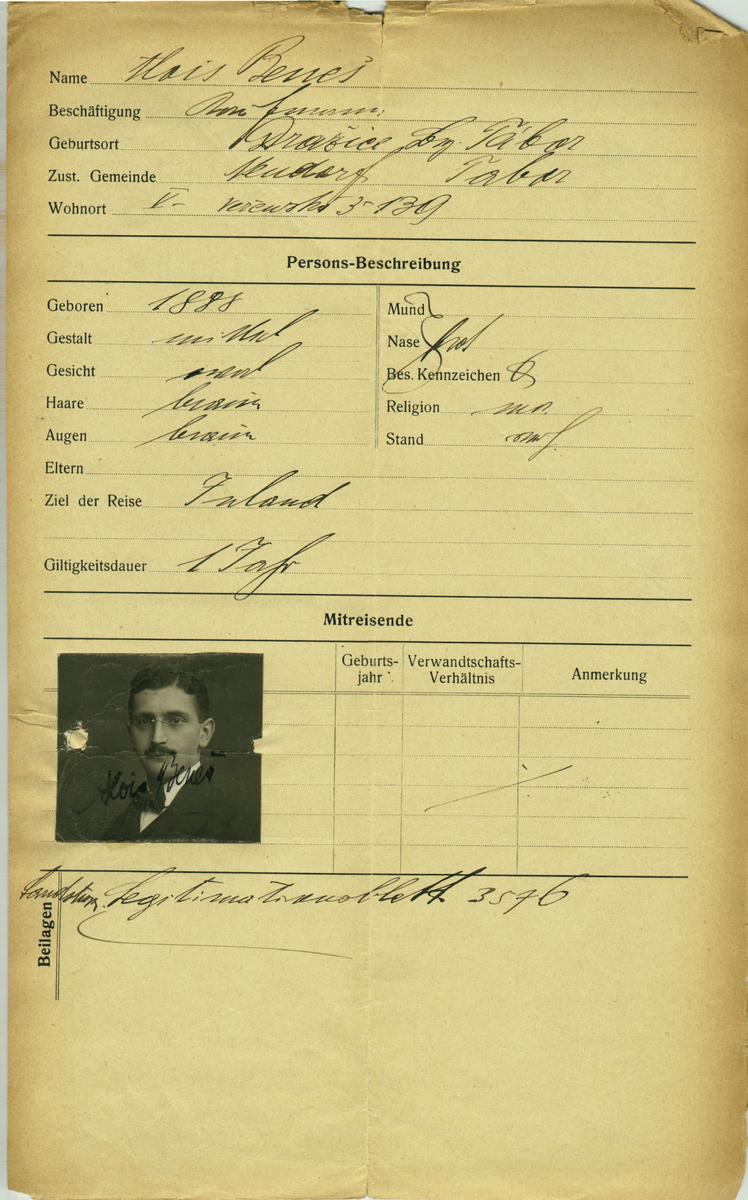 Name Alois Beneš
Beschäftigung Kaufmann
Geburtsort Dražice Bz. Tábor
Zust. Gemeinde Neudorf Tabor
Wohnort V- 3-139
Persons-Beschreibung
Geboren 1888
Gestalt mittel
Gesicht oval
Haare braun
Augen braun
Eltern
Ziel der Reise Inland
Giltigkeitsdauer 1 Jahr
Mund
Nase prop
Bes. Kennzeichen
Religion mos.
Stand
Mitreisende
Geburts-
jahr
Verwandtschafts-
Verhältnis
Anmerkung
Alois Beneš
Landsturm Legitimationsblatt 3576
Beilagen